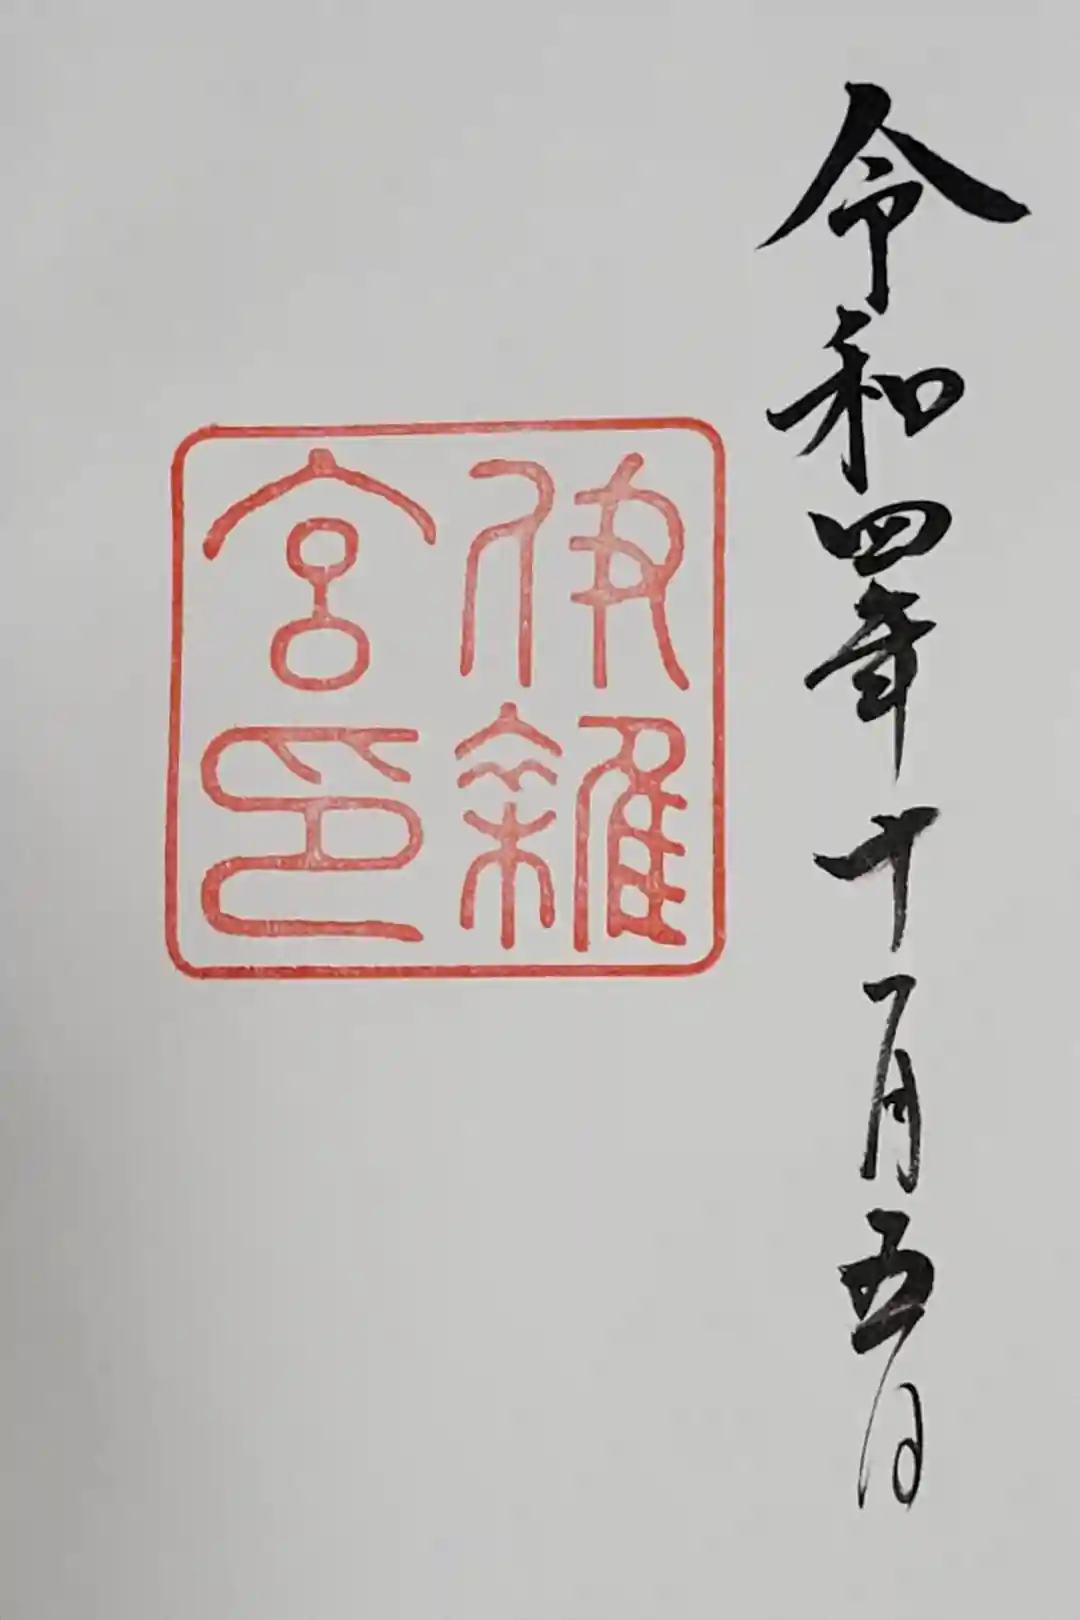 令和四年十月五日
伊雑
宮印